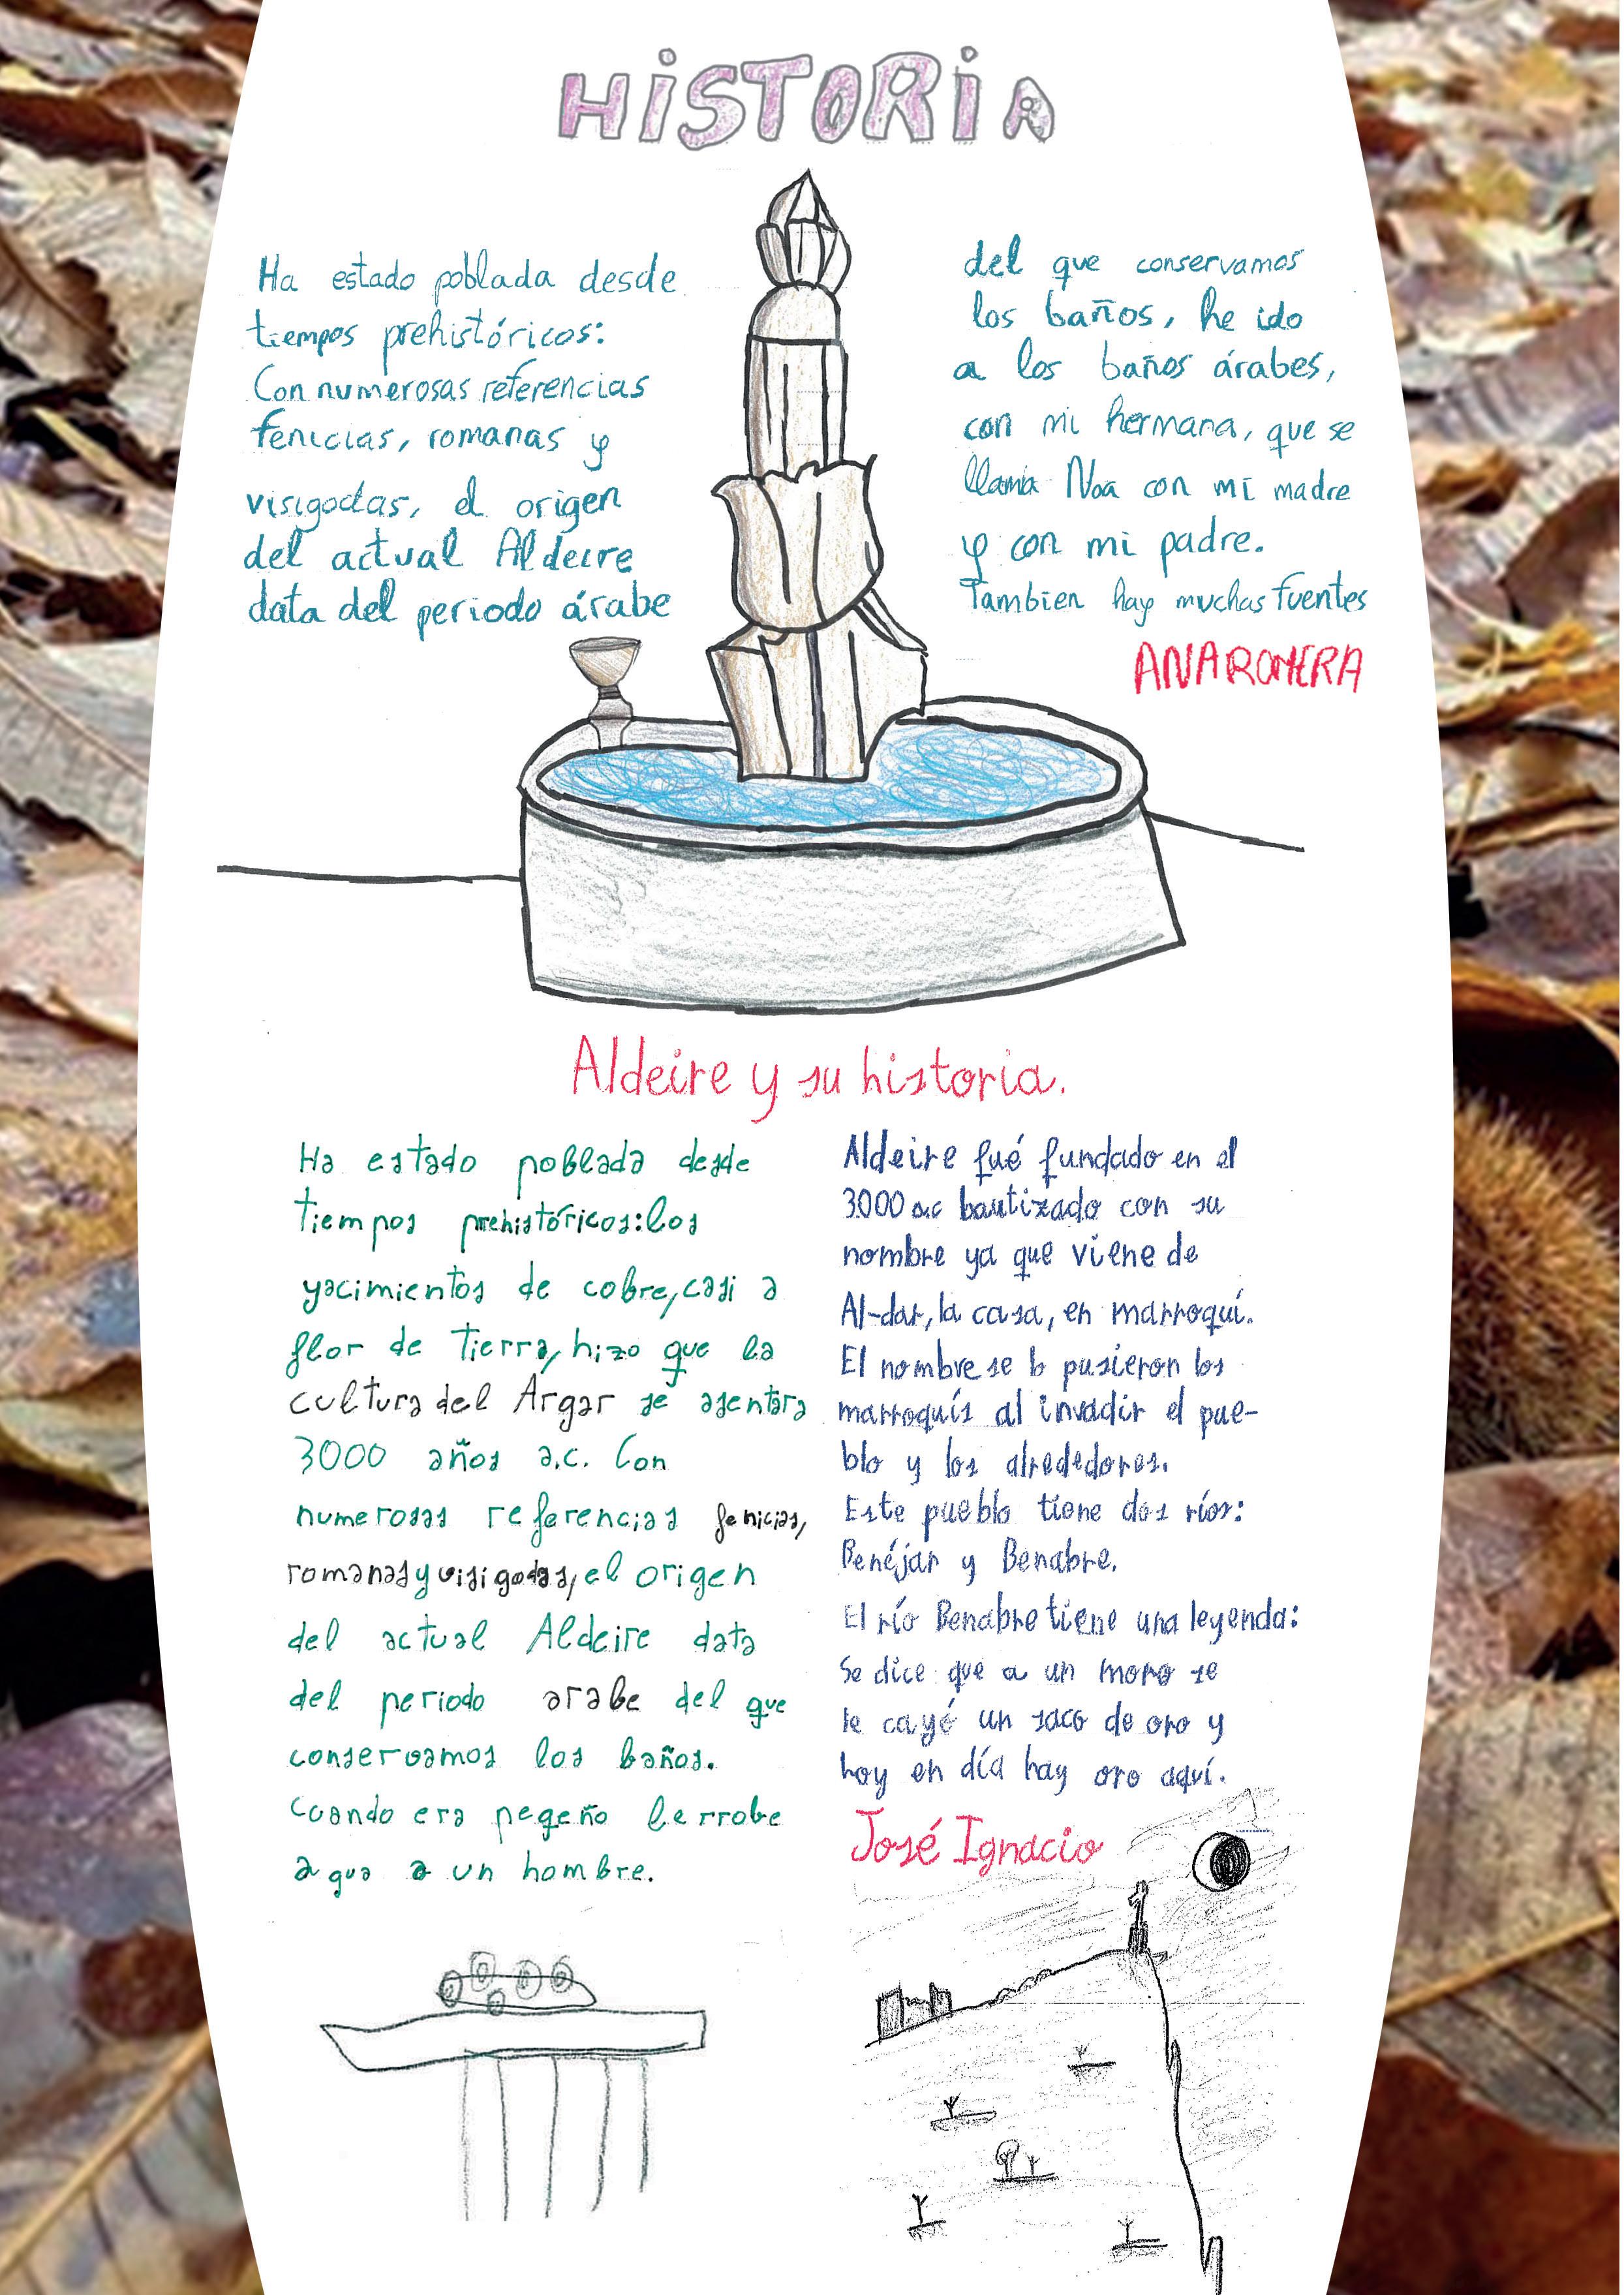 HiSTORiA
Ha estado poblada desde
tiempos prehistóricos:
Con numerosas referencias
fenicias, romanas y
visigodas, el origen
del actual Aldeire
data del periodo árabe
del que conservamos
los baños, he ido
a los baños árabes,
con mi hermana, que se
llama Noa con mi madre
y con mi padre.
Tambien hay muchas fuentes
ANA ROMERA
Aldeire y su historia.
Ha estado poblada desde
tiempos prehistóricos:los
yacimientos de cobre, casi a
flor de tierra, hizo que la
cultura del Argar se asentara
3000 años a.c. Con
numerosas referencias fenicias,
romanas y visigodas, el origen
del actual Aldeire data
del periodo arabe del que
conservamos los baños.
Cuando era pegeño le rrobe
agua a un hombre.
Aldeire fué fundado en el
3000 a.c bautizado con su
nombre ya que viene de
Al-dar, la casa, en marroquí.
El nombre se lo pusieron los
marroquís al invadir el pue-
blo y los alrededores.
Este pueblo tiene dos ríos:
Benéjar y Benabre.
El río Benabre tiene una leyenda:
Se dice que a un moro se
le cayó un saco de oro y
hoy en día hay oro aquí.
José Ignacio